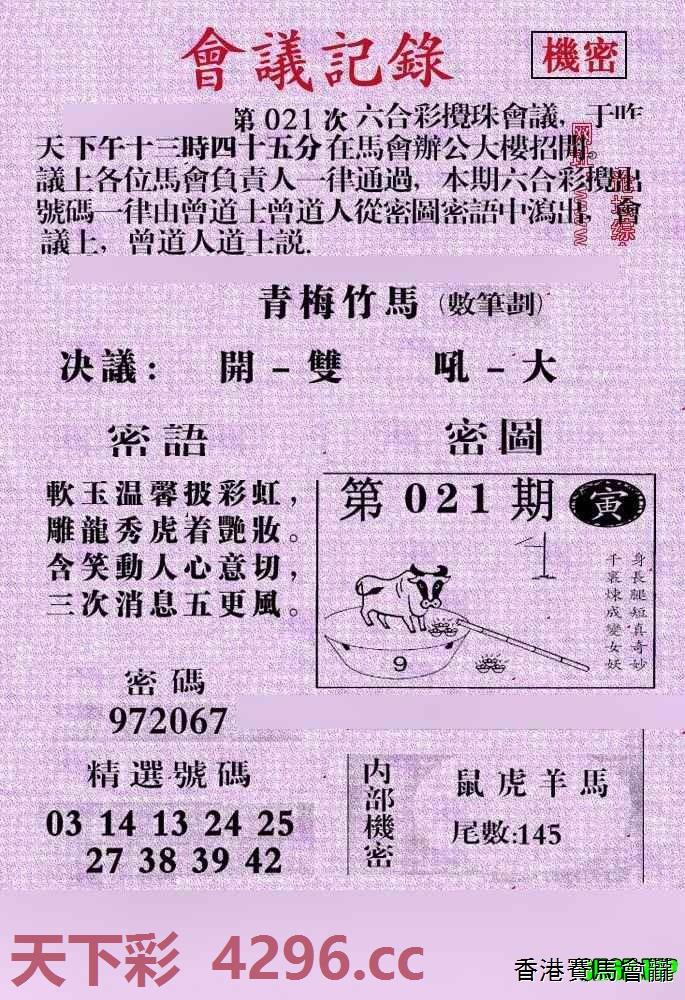 會議記錄
機密
第021次六合彩攪珠會議，于昨
天下午十三時四十五分在馬會辦公大樓招開。
議上各位馬會負責人一律通過，本期六合彩攪出
號碼一律由曾道士曾道人從密圖密語中瀉出，會
議上，曾道人道士説.
青梅竹馬（數筆劃）
决議：開－雙 吼－大
密語
軟玉温馨披彩虹，
雕龍秀虎着艷妝。
含笑動人心意切，
三次消息五更風。
密圖
第021期
寅
身長腿短真奇妙
千哀煉成變女妖
9
密碼
972067
精選號碼
03 14 13 24 25
27 38 39 42
内部機密
鼠虎羊馬
尾數:145
天下彩 4296.cc
香港賽馬會